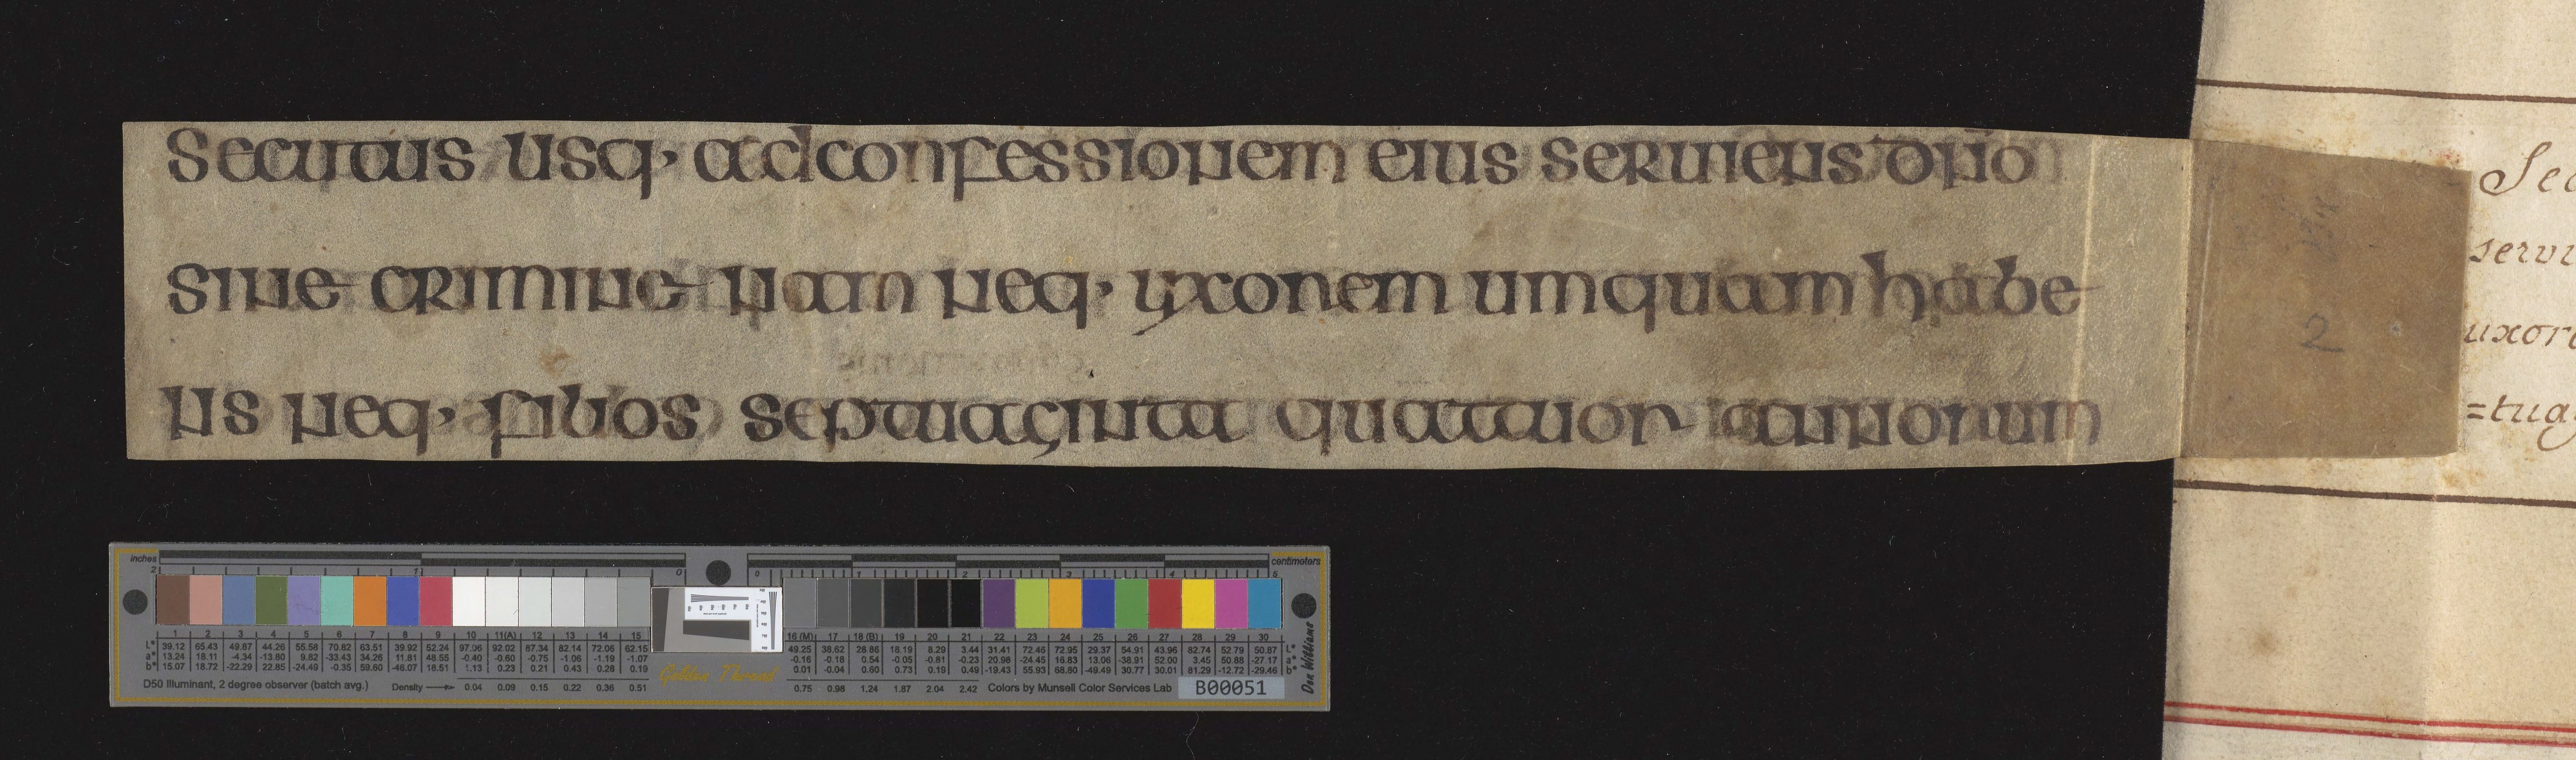 secutus usq· ad confessionem eius seruiens dn̄o
sine crimine nam neq· uxorem umquam habe
ns neq· filios septuaginta quattuor annorum
Sec
servi
uxor
=tuag
2
inches
centimeters
2 1 0
0 1 2 3 4 5
1 2 3 4 5 6 7 8 9 10 11(A) 12 13 14 15
L* 39.12 65.43 49.87 44.26 55.56 70.82 63.51 39.92 52.24 97.06 92.02 87.34 82.14 72.06 62.15
a* 13.24 18.11 -4.34 -13.80 9.82 -33.43 34.26 11.81 48.55 -0.40 -0.60 -0.75 -1.06 -1.19 -1.07
b* 15.07 18.72 -22.29 22.85 -24.49 -0.35 59.60 -46.07 18.51 1.13 0.23 0.21 0.43 0.28 0.19
D50 Illuminant, 2 degree observer (batch avg.) Density 0.04 0.09 0.15 0.22 0.36 0.51
Golden Thread
16 (M) 17 18 (B) 19 20 21 22 23 24 25 26 27 28 29 30
49.25 38.62 28.86 16.19 8.29 3.44 31.41 72.46 72.95 29.37 54.91 43.96 82.74 52.79 50.87 L*
-0.16 -0.18 0.54 -0.05 -0.81 -0.23 20.98 -24.45 16.83 13.06 -38.91 52.00 3.45 50.88 -27.17 a*
0.01 -0.04 0.60 0.73 0.19 0.49 -19.43 55.93 68.80 -49.49 30.77 30.01 81.29 -12.72 -29.46 b*
0.75 0.98 1.24 1.67 2.04 2.42 Colors by Munsell Color Services Lab
B00051
Don Williams